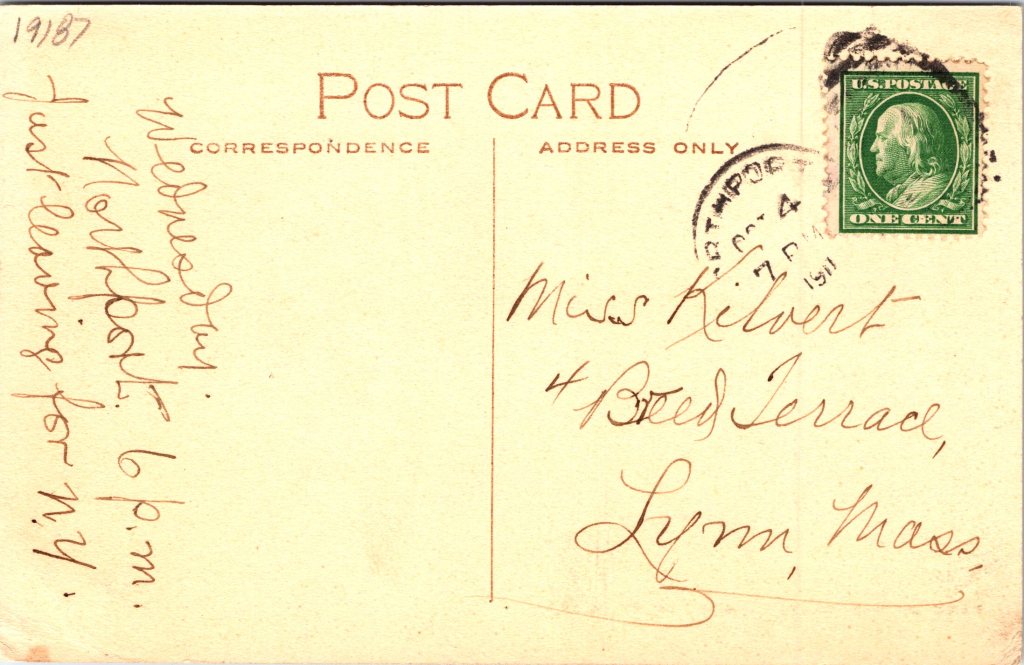 19187
POST CARD
CORRESPONDENCE
ADDRESS ONLY
U.S. POSTAGE
ONE CENT
RTHPORT
OCT 4
7 PM
1911
Wednesday.
Northport. 6 p.m.
Just leaving for N.Y.
Miss Kilvert
4 Breed Terrace,
Lynn, Mass.